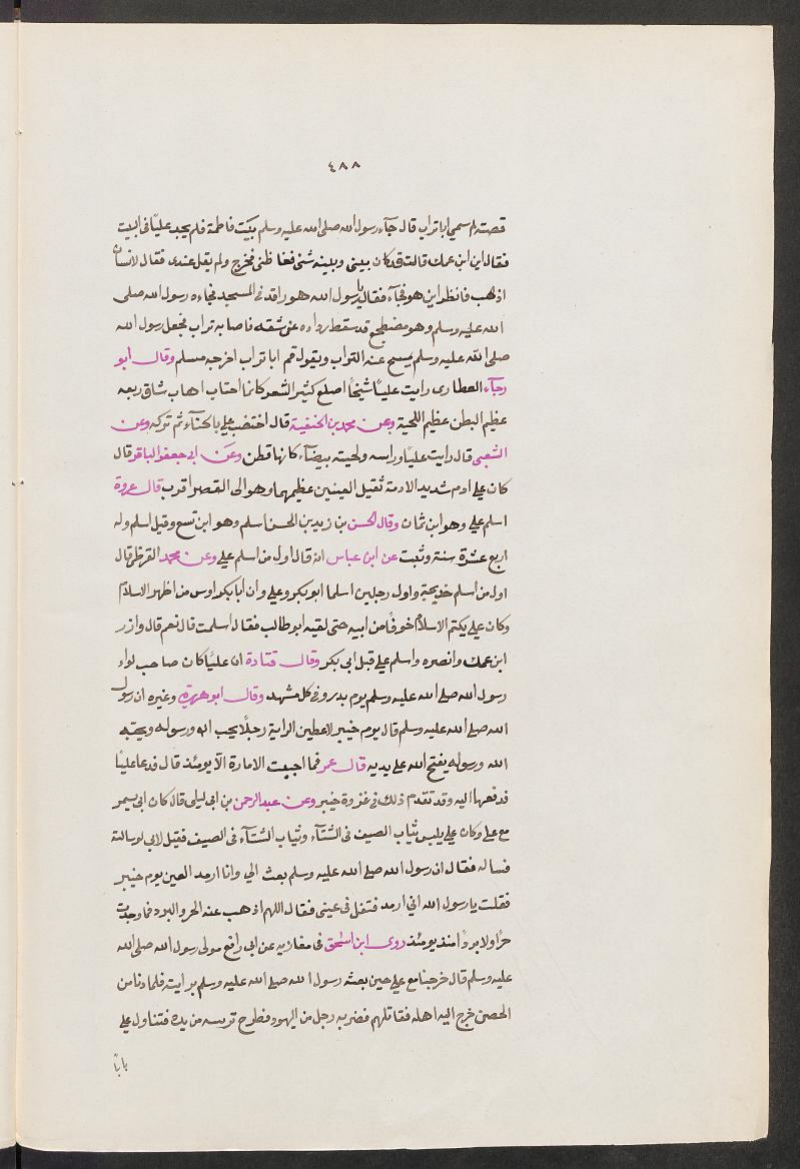 ٤٨٨
قصته لم سمي ابا تراب قال جآء رسول الله صلى الله عليه وسلم بيت فاطمة فلم يجد عليًا في البيت
فقال اين ابن عمك قالت قد كان بيني وبينه شئ فغاظني فخرج ولم يقل عندى فقال لانسان
اذهب فانظر اين هو فجآء فقال يا رسول الله هو راقد فى المسجد فجاءه رسول الله صلى
الله عليه وسلم وهو مضطجع قد سقط رداءه عن شقه فاصابه تراب فجعل رسول الله
صلى الله عليه وسلم يمسح عنه التراب ويقول قم ابا تراب اخرجه مسلم وقال ابو
رجآء العطاردى رايت عليًا شيخًا اصلع كثير الشعر كانما احتاب اهاب شاة ربعه
عظيم البطن عظيم اللحية وعن محمد بن الحنفية قال اختضب علي بالحنآء ثم تركه وعن
الشعبى قال رايت عليًا وراسه ولحيته بيضآء كانها قطن وعن ابى جعفر الباقر قال
كان علي ادم شديد الادمة ثقيل العينين عظيمهما وهو الى القصر اقرب قال عروة
اسلم علي وهو ابن ثمان وقال الحسن بن زيد بن الحسن اسلم وهو ابن تسع وقيل اسلم وله
اربع عشرة سنة وثبت عن ابن عباس انه قال اول من اسلم علي وعن محمد القرظي قال
اول من اسلم خديجة واول رجلين اسلما ابو بكر وعلي وان ابا بكر اول من اظهر الاسلام
وكان علي يكتم الاسلام خوفًا من ابيه حتى لقيه ابو طالب فقال اسلمت قال نعم قال وازر
ابن عمك وانصره واسلم علي قبل ابى بكر وقال قتادة ان عليًا كان صاحب لواء
رسول الله صلى الله عليه وسلم يوم بدر وفى كل مشهد وقال ابو هريرة وغيره ان رسول
الله صلى الله عليه وسلم قال يوم خيبر لاعطين الراية رجلًا يحب الله ورسوله ويحبه
الله ورسوله يفتح الله على يديه قال عمر فما احببت الامارة الا يومئذ قال فدعا عليًا
فدفعها اليه وقد تقدم ذلك فى غزوة خيبر وعن عبد الرحمن بن ابى ليلى قال كان ابى يسمر
مع علي وكان علي يلبس ثياب الصيف فى الشتآء وثياب الشتآء فى الصيف فقيل لابى لو سالته
فساله فقال ان رسول الله صلى الله عليه وسلم بعث الي وانا ارمد العين يوم خيبر
فقلت يا رسول الله اني ارمد فتفل فى عينى فقال اللهم اذهب عنه الحر والبرد فما وجدت
حرًا ولا بردًا منذ يومئذ روى ابن اسحق فى مغازيه عن ابى رافع مولى رسول الله صلى الله
عليه وسلم قال خرجنا مع علي حين بعثه رسول الله صلى الله عليه وسلم برايته فلما دنا من
الحصن خرج اليه اهله فقاتلهم فضربه رجل من اليهود فطرح ترسه من يده فتناول علي
بابًا